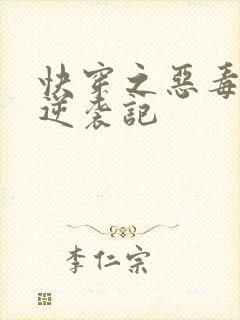 快穿之惡毒
逆袭記
李仁宗